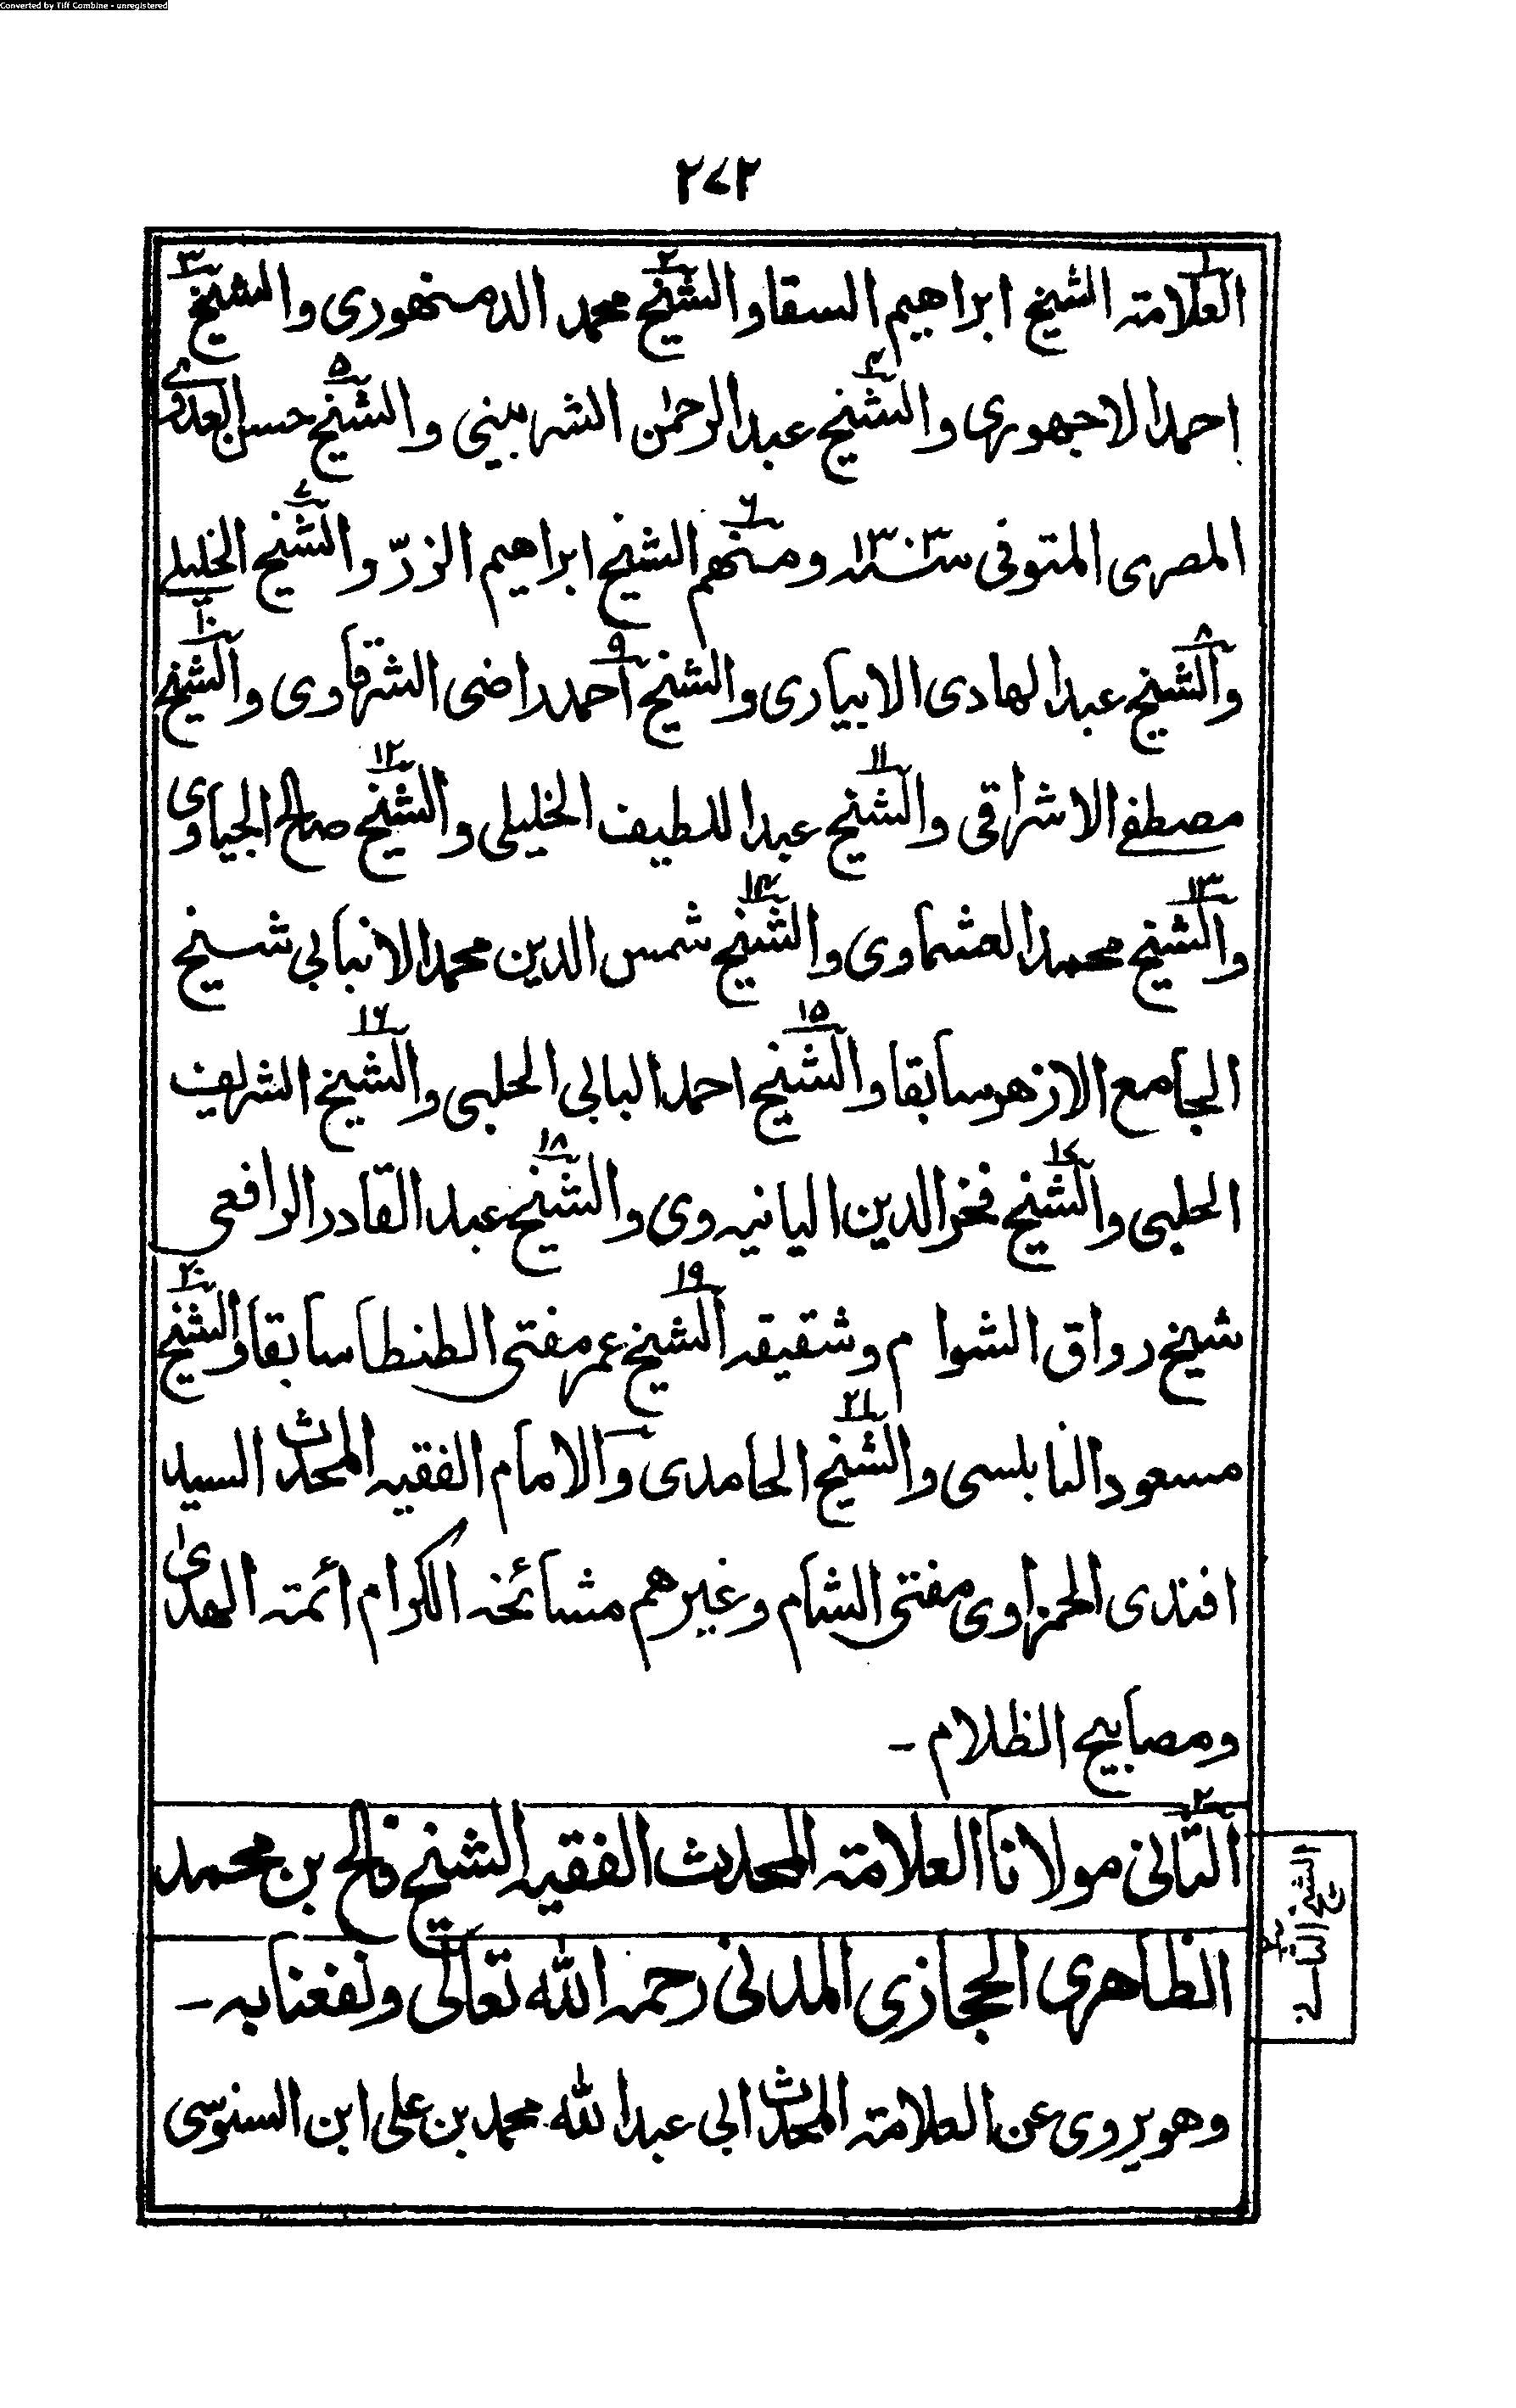 Converted by Tiff Combine - unregistered
٢٧٢
العلامۃ الشیخ ابراھیم السقا والشیخ محمد الدمنھوری والشیخ
احمد الاجھوری والشیخ عبدالرحمٰن الشربینی والشیخ حسن العدوی
المصری المتوفی سنۃ ١٣٠٣ ومنھم الشیخ ابراھیم الزرّو والشیخ الخلیلی
والشیخ عبدالھادی الابیاری والشیخ احمد راضی الشرقاوی والشیخ
مصطفی الاشراقی والشیخ عبداللطیف الخلیلی والشیخ صالح الجیاوی
والشیخ محمد العشماوی والشیخ شمس الدین محمد الانبابی شیخ
الجامع الازھر سابقا والشیخ احمد البابی الحلبی والشیخ الشریف
الحلبی والشیخ فخر الدین الیانیوی والشیخ عبد القادر الرافعی
شیخ رواق الشوام وشقیقہ الشیخ عمر مفتی الطنطا سابقا والشیخ
مسعود النابلسی والشیخ الحامدی والامام الفقیہ المحدث السید
افندی الحمزاوی مفتی الشام وغیرھم مشائخہ الکرام ائمۃ الھدیٰ
ومصابیح الظلام ۔
الثانی مولانا العلامۃ المحدث الفقیہ الشیخ فالح بن محمد
الظاھری الحجازی المدنی رحمہ اللہ تعالٰی ونفعنا بہ ۔
وھو یروی عن العلامۃ المحدث ابی عبداللہ محمد بن علی ابن السنوسی
الشیخ الثانی